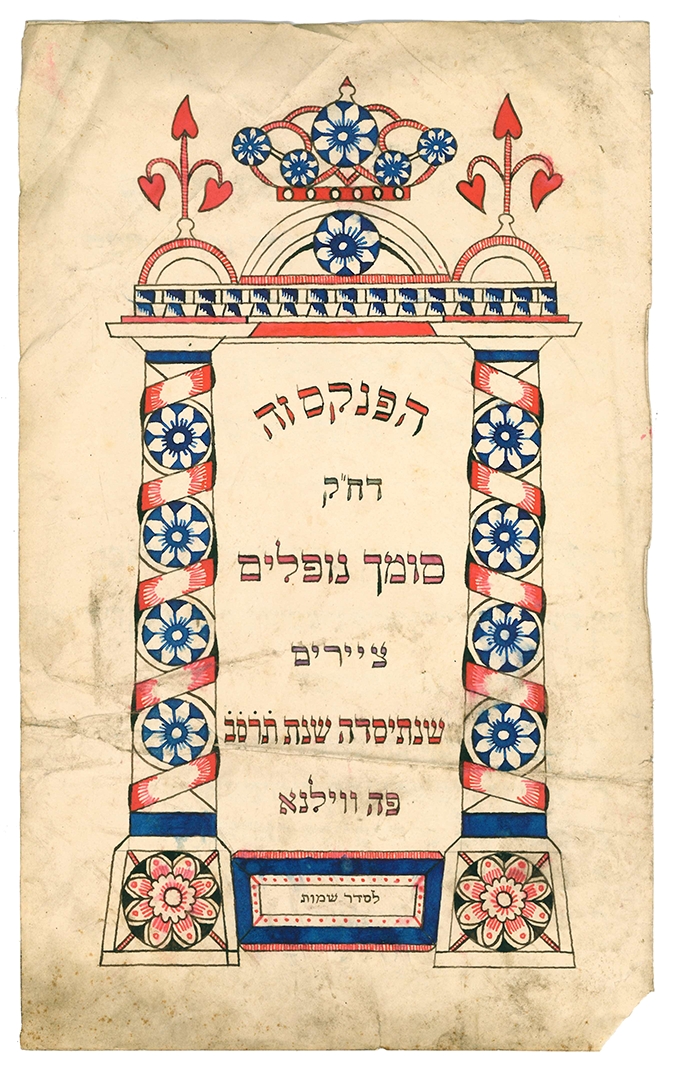 הפנקס זה
דח"ק
סומך נופלים
ציירים
שנתיסדה שנת תׄרׄסׄבׄ
פה ווילנא
לסדר שמות